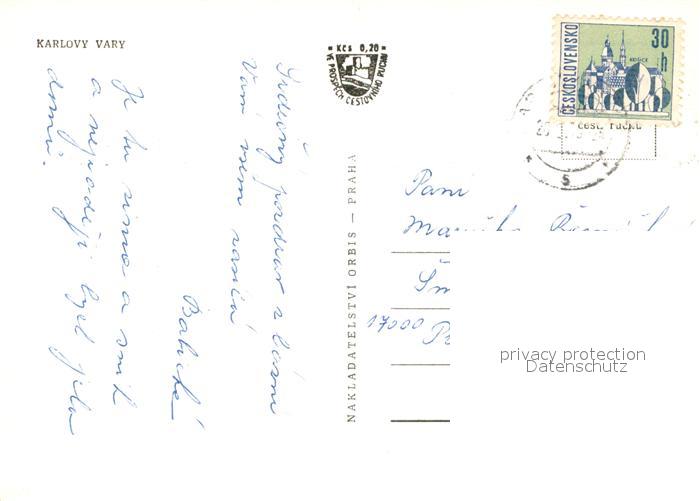 KARLOVY VARY
Kčs 0,20
VE PROSPĚCH CESTOVNÍHO RUCHU
ČESKOSLOVENSKO
30 h
KOŠICE
cest. ruchu
S
Srdečný pozdrav z lázní
Vám všem zasílá
Babička
Je tu zima a sníh
a nejraději bych jela
domů.
NAKLADATELSTVÍ ORBIS — PRAHA
Paní
17000
privacy protection
Datenschutz